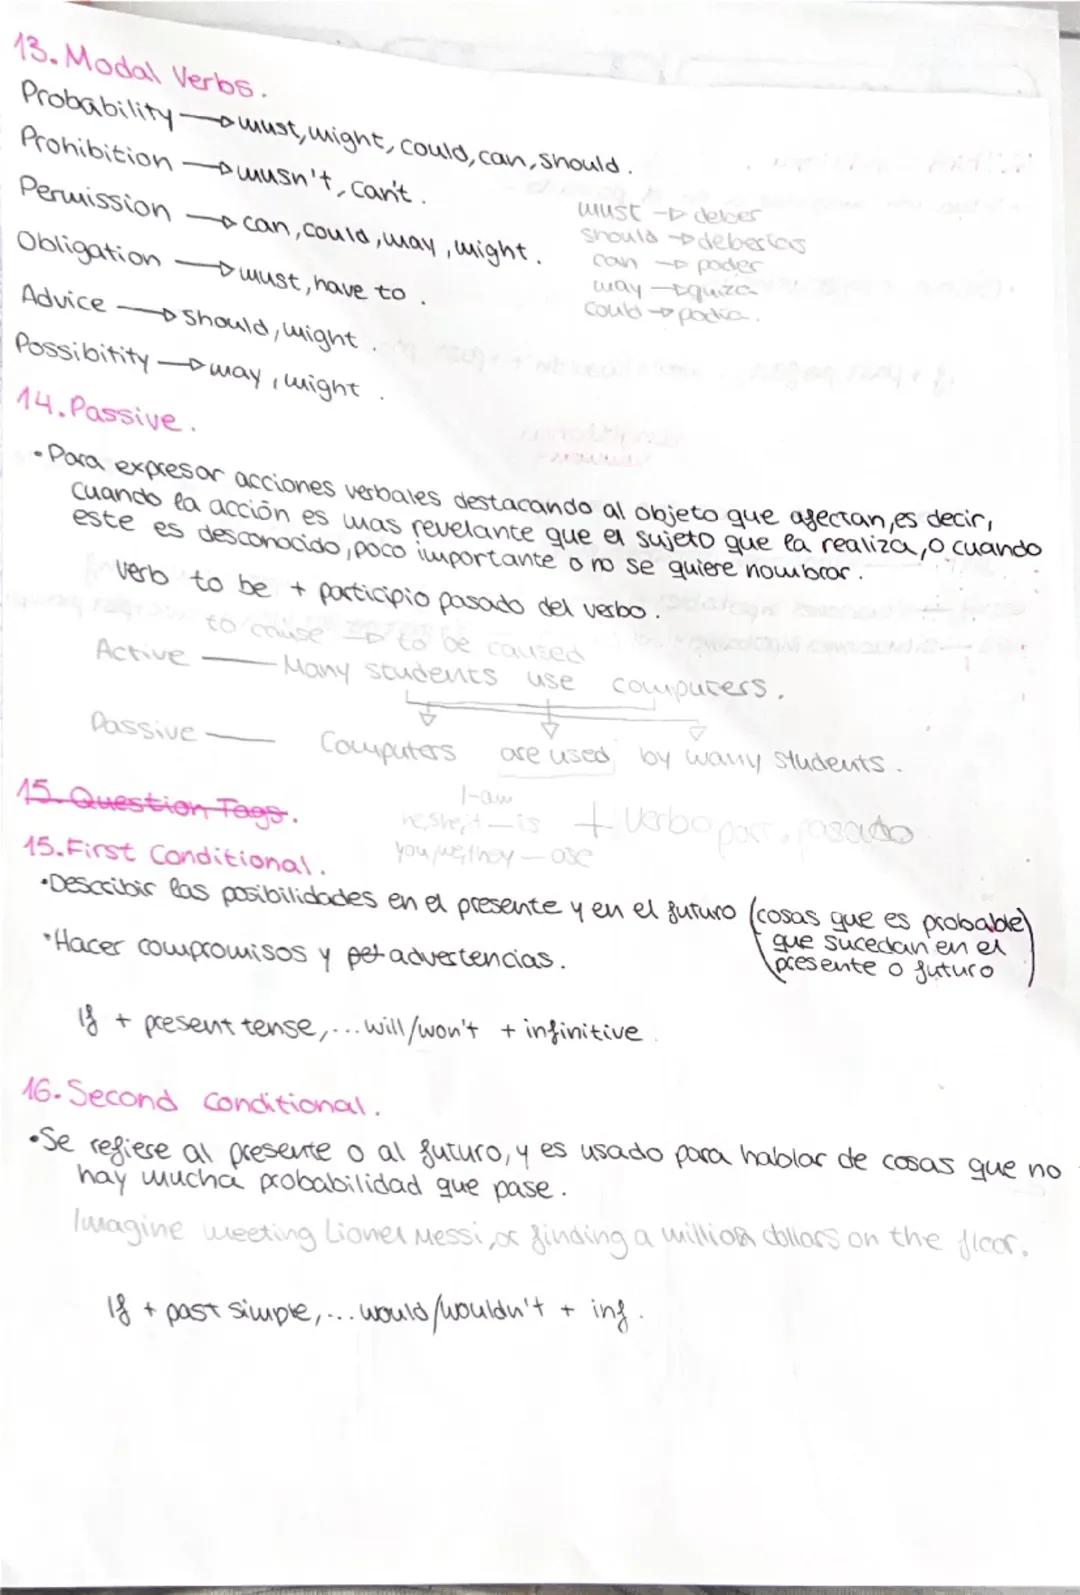 13. Modal Verbs.
Probability → must, might, could, can, should.
Prohibition → musn't, can't.
Permission → can, could, may, might.
Obligation → must, have to.
Advice → should, might.
Possibitity → may, might.
must → deber
should → deberías
can → poder
may → quizá
could → podía.
14. Passive.
• Para expresar acciones verbales destacando al objeto que afectan, es decir,
cuando la acción es mas revelante que el sujeto que la realiza, o cuando
este es desconocido, poco importante o no se quiere nombrar.
verb to be + participio pasado del verbo.
to cause → to be caused
Active — Many students use computers.
Passive — Computers are used by many students.
15. Question Tags.
I - am
he, she, it - is + verbo part. pasado
you, we, they - are
15. First Conditional.
• Describir las posibilidades en el presente y en el futuro (cosas que es probable
que sucedan en el
presente o futuro)
• Hacer compromisos y pet advertencias.
If + present tense, ... will/won't + infinitive.
16. Second Conditional.
• Se refiere al presente o al futuro, y es usado para hablar de cosas que no
hay mucha probabilidad que pase.
Imagine meeting Lionel Messi, or finding a million dollars on the floor.
If + past simple, ... would/wouldn't + inf.